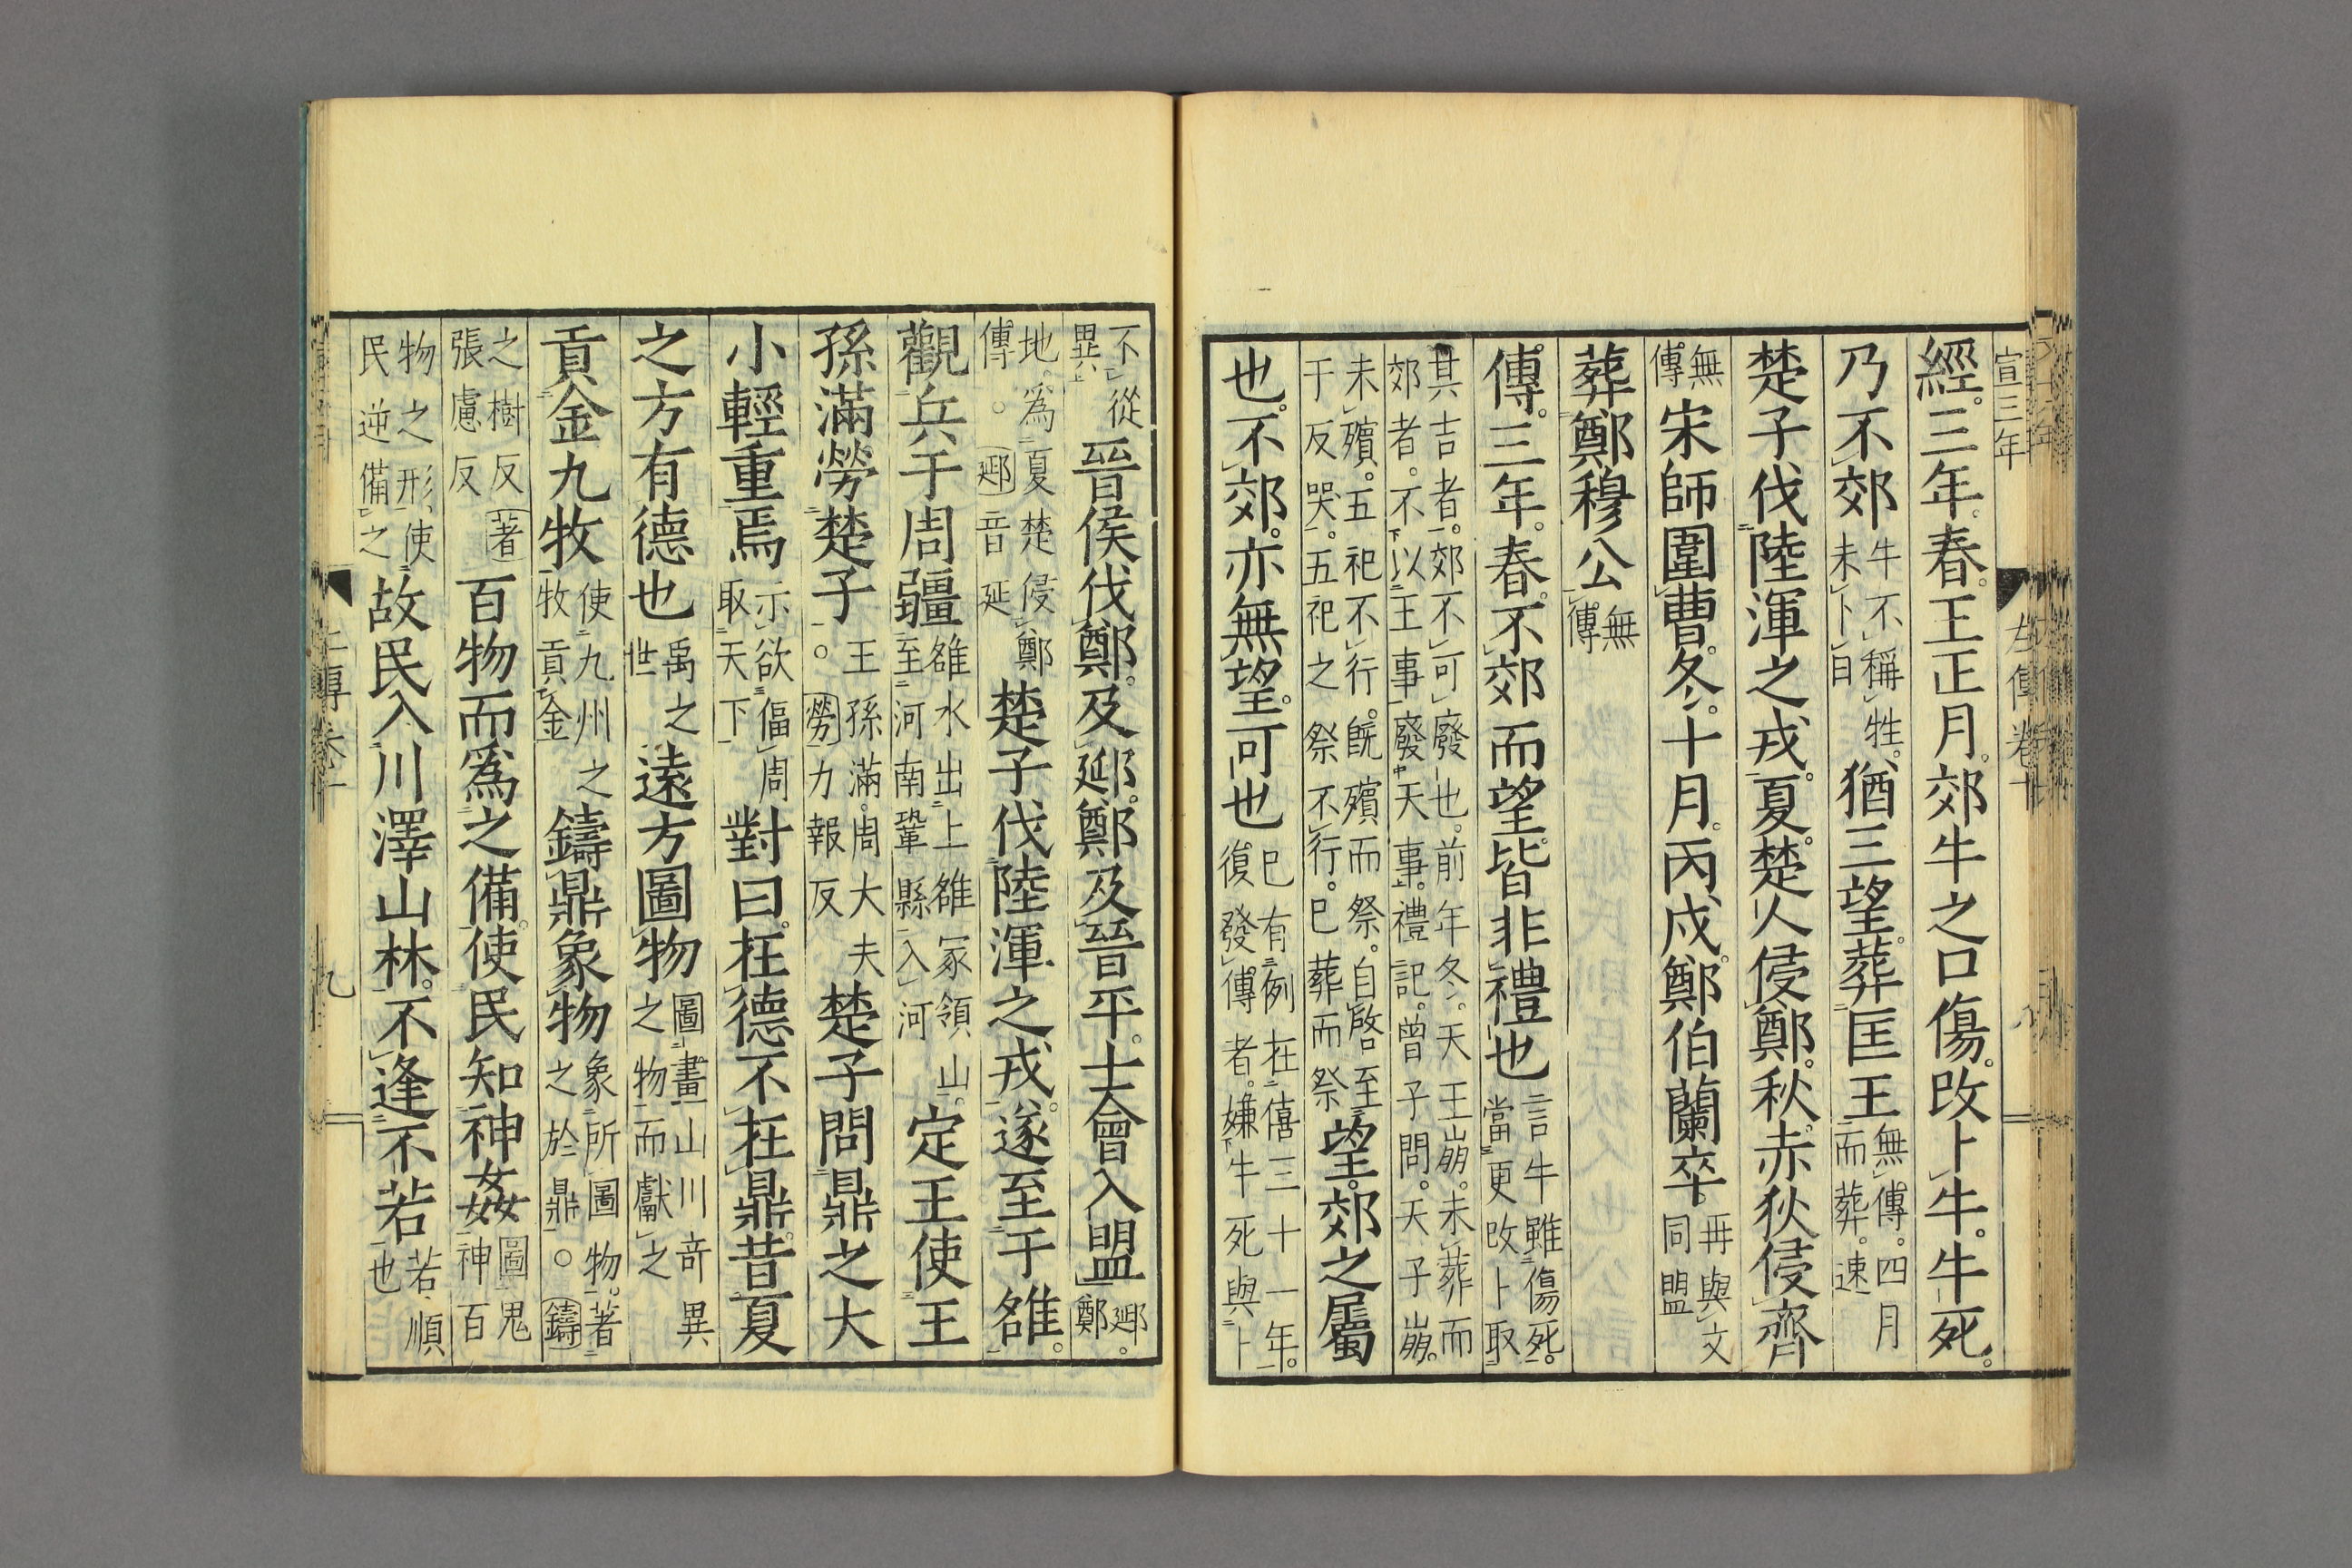 宣三年
左傳卷十
八
經。三年。春。王正月。郊牛之口傷。改卜牛。牛死。
乃不郊牛不稱牲。未卜日猶三望。葬匡王無傳。四月而葬。速
楚子伐陸渾之戎。夏。楚人侵鄭。秋。赤狄侵齊
無傳宋師圍曹。冬。十月。丙戌。鄭伯蘭卒。再與文同盟
葬鄭穆公無傳
傳。三年。春。不郊而望。皆非禮也言牛雖傷死。當更改卜取
其吉者。郊不可廢也。前年冬。天王崩。未葬而郊者。不以王事廢天事。禮記。曾子問。天子崩。
未殯。五祀不行。旣殯而祭。自啓至于反哭。五祀之祭不行。已葬而祭望。郊之屬
也。不郊。亦無望。可也已有例在僖三十一年。復發傳者。嫌牛死與卜
不從異晉侯伐鄭。及郔。鄭及晉平。士會入盟郔。鄭
地。爲夏楚侵鄭傳。○郔音延楚子伐陸渾之戎。遂至于雒。
觀兵于周疆雒水出上雒冢領山。至河南鞏縣入河定王使王
孫滿勞楚子王孫滿。周大夫○勞力報反楚子問鼎之大
小輕重焉示欲偪周取天下對曰。在德不在鼎。昔夏
之方有德也禹之世遠方圖物圖畫山川奇異之物而獻之
貢金九牧使九州之牧貢金鑄鼎象物象所圖物。著之於鼎。○鑄
之樹反著張慮反百物而爲之備。使民知神姦圖鬼神百
物之形、使民逆備之故民入川澤山林。不逢不若若、順也
九